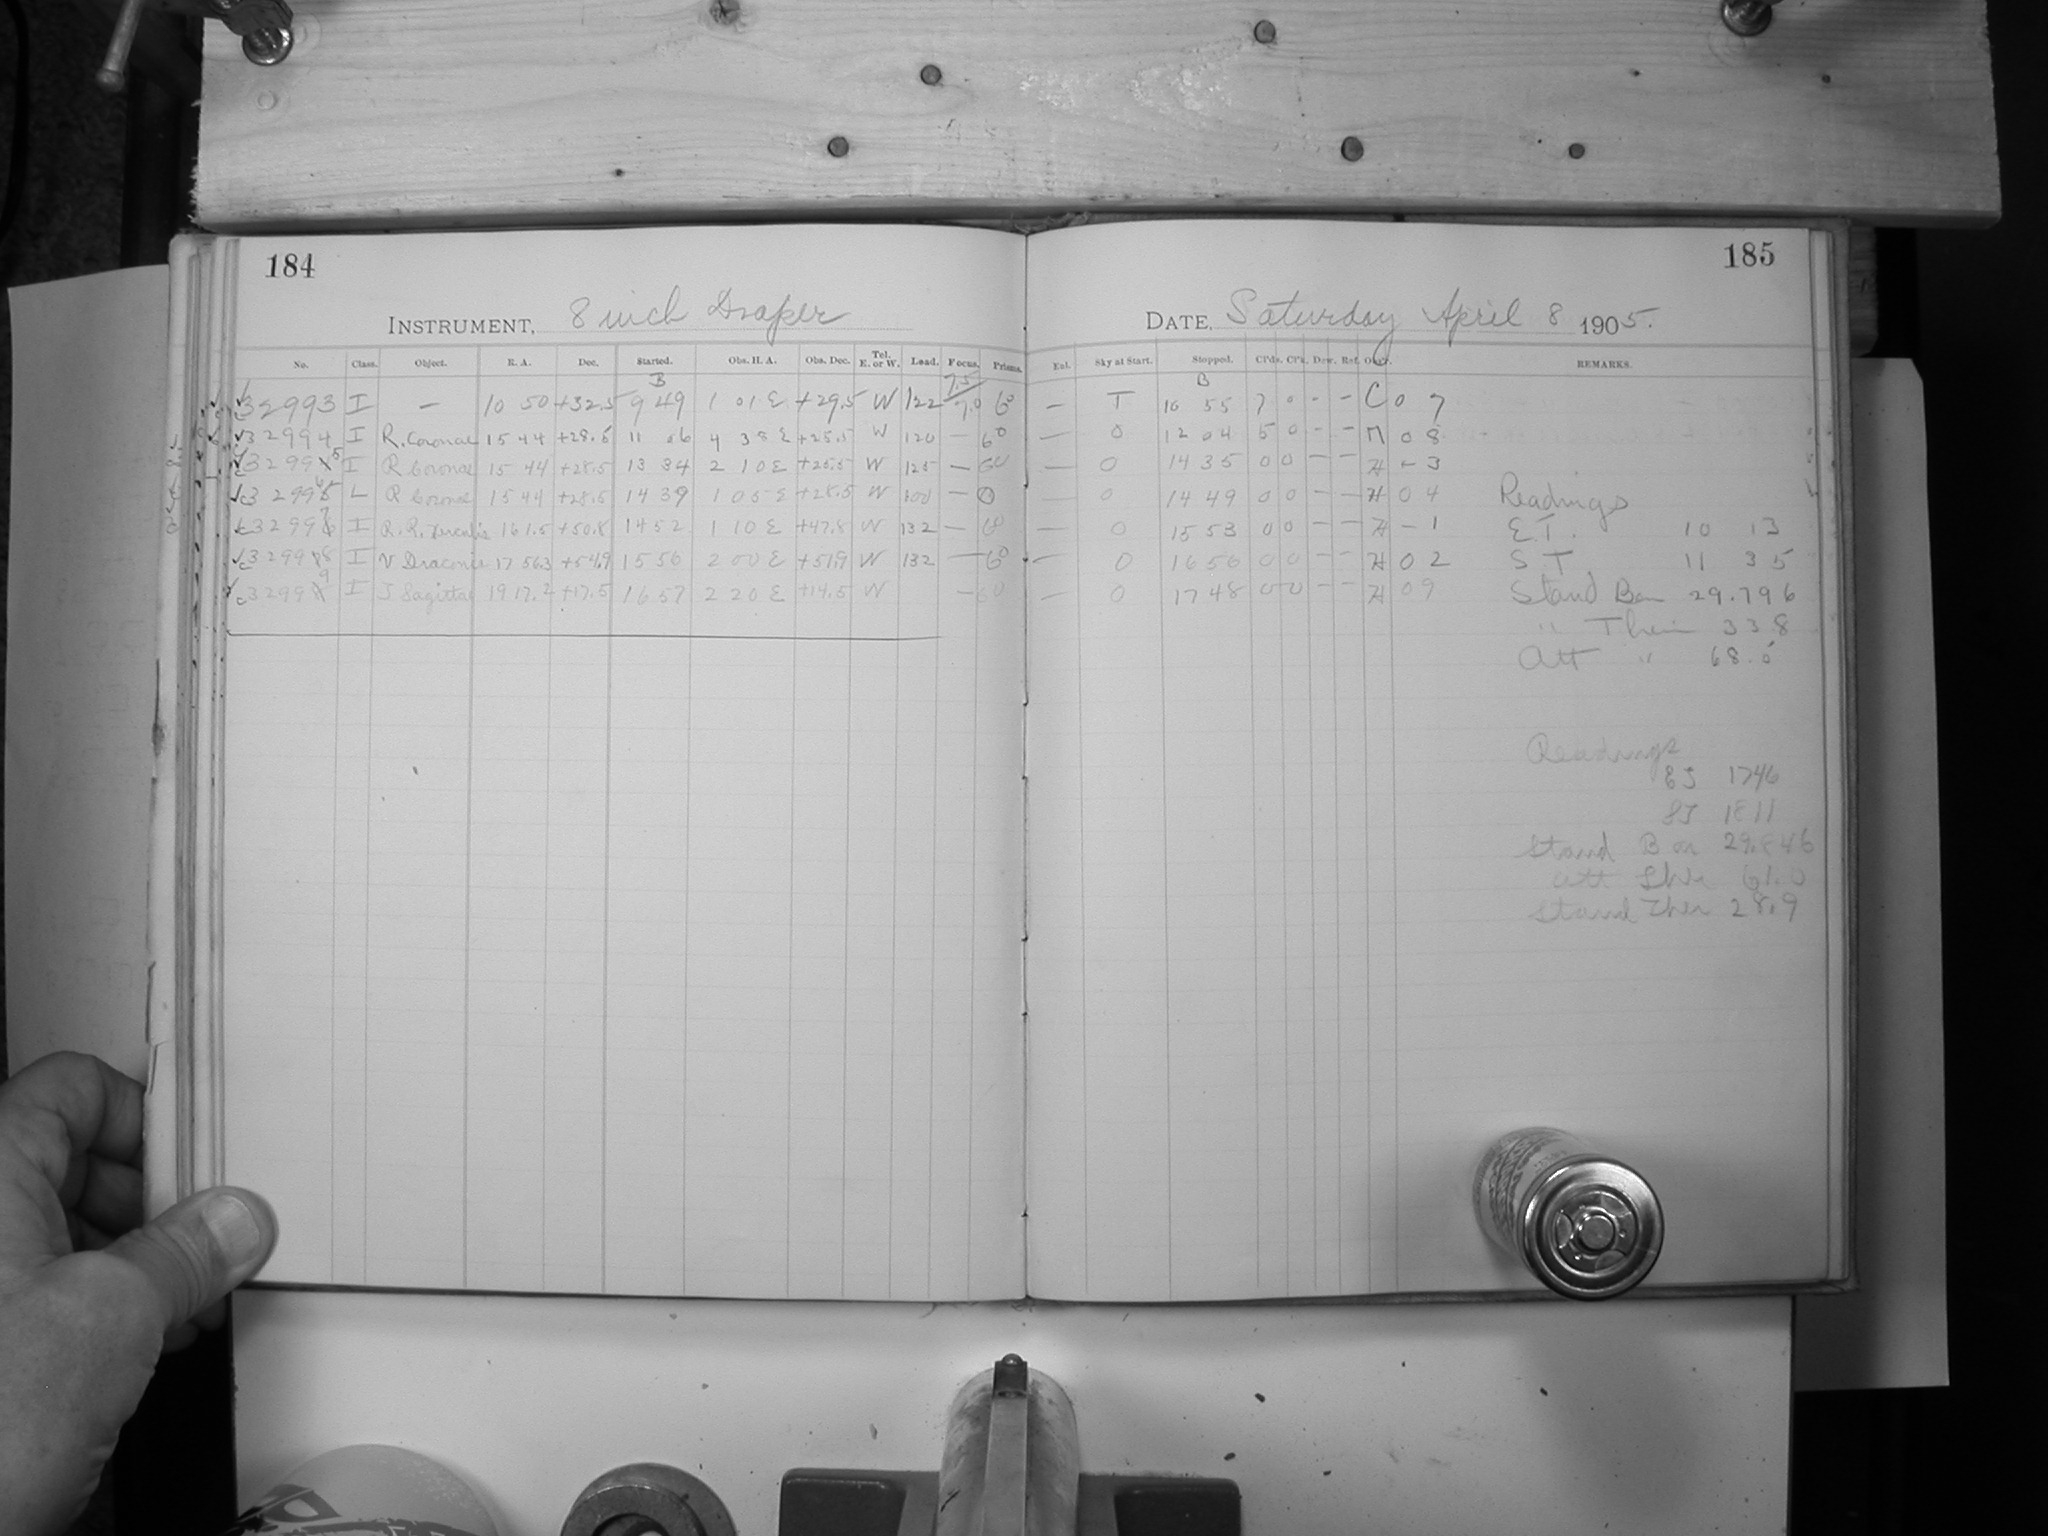 184
INSTRUMENT, 8 inch Draper
No. Class. Object. R. A. Dec. Started. Obs. H. A. Obs. Dec. Tel. E. or W. Lead. Focus. Prisms.
B 7.5
32993 I — 10 50 +32.5 9 49 1 01 E +29.5 W 122 7.0 60
32994 I R. Coronae 15 44 +28.5 11 06 4 38 E +25.5 W 120 — 60
32995 I R Coronae 15 44 +28.5 13 34 2 10 E +25.5 W 125 — 60
32996 L R Coronae 15 44 +28.5 14 39 1 05 E +28.5 W 100 — 0
32997 I R. R. Herculis 16 1.5 +50.8 14 52 1 10 E +47.8 W 132 — 60
32998 I V Draconis 17 56.3 +54.9 15 56 2 00 E +51.9 W 132 — 60
32999 I Sagittae 19 17.2 +17.5 16 57 2 20 E +14.5 W — 60
185
DATE, Saturday April 8 1905.
Enl. Sky at Start. Stopped. Cl'ds. Cl'k. Dew. Ref. Obs'r. REMARKS.
B
— T 10 55 7 0 - - C 0 7
— 0 12 04 5 0 - - M 0 8
— 0 14 35 0 0 - - H - 3
— 0 14 49 0 0 - - H 0 4 Readings
— 0 15 53 0 0 - - H - 1 E.T. 10 13
— 0 16 56 0 0 - - H 0 2 S T. 11 35
— 0 17 48 0 0 - - H 0 9 Stand Bar 29.796
" Ther 33.8
Att " 68.5
Readings
ET 1746
ST 1811
Stand Bar 29.846
Att Ther 61.0
Stand Ther 28.9